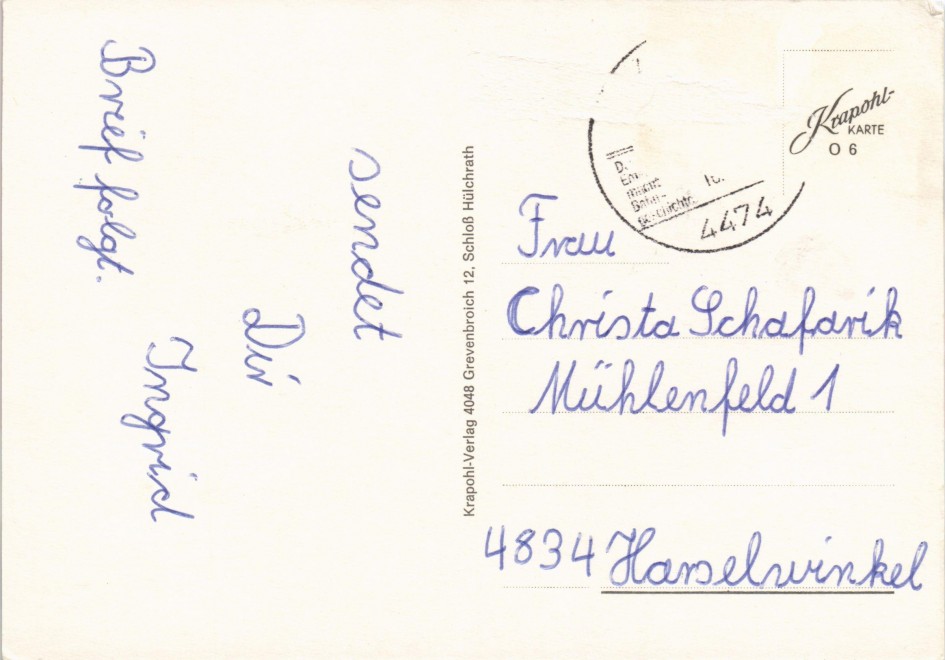 sendet
Dir
Ingrid
Brief folgt.
Krapohl-Verlag 4048 Grevenbroich 12, Schloß Hülchrath
Krapohl-
KARTE
O 6
4474
Frau
Christa Schafarik
Mühlenfeld 1
4834 Harselwinkel